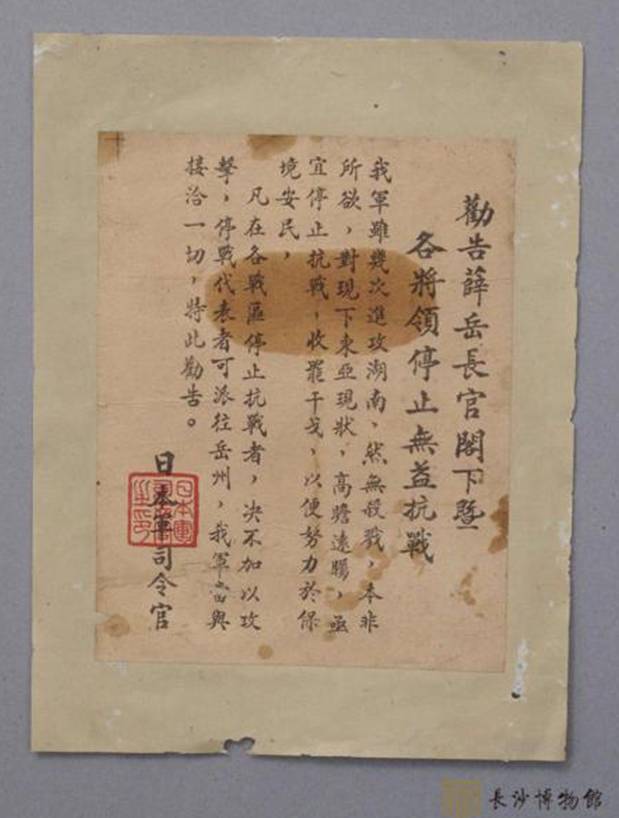 勸告薛岳長官閣下暨
各將領停止無益抗戰
我軍雖幾次進攻湖南，然無殺戮，本非
所欲，對現下東亞現狀，高瞻遠矚，亟
宜停止抗戰，收罷干戈，以便努力於保
境安民，
凡在各戰區停止抗戰者，决不加以攻
擊，停戰代表者可派往岳州，我軍當與
接洽一切，特此勸告。
日本軍司令官
日本軍
長沙博物館